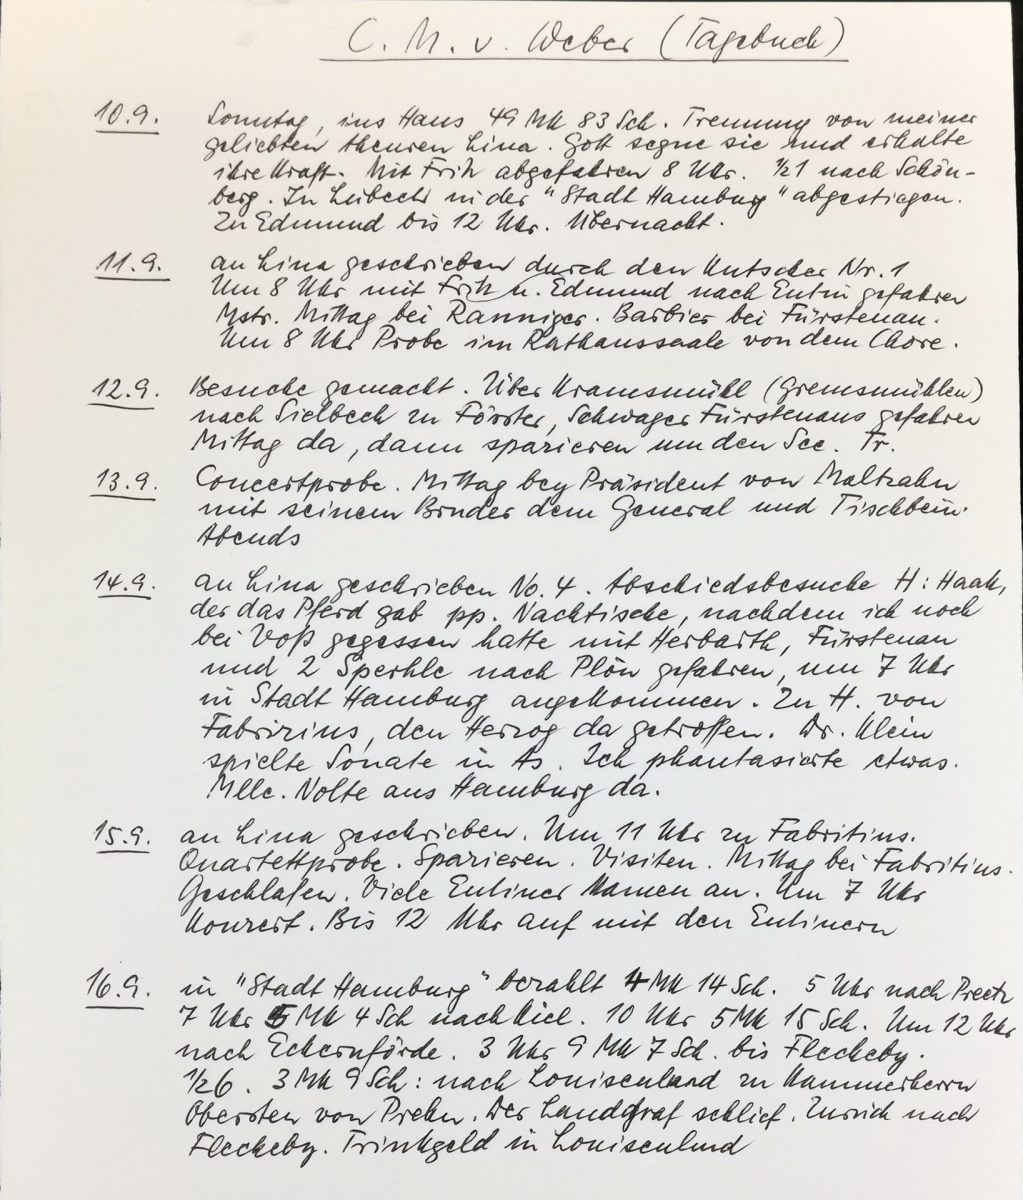 C. M. v. Weber (Tagebuch)
10.9. Sonntag, ins Haus 49 Mk 83 Sch. Trennung von meiner
geliebten theuren Lina. Gott segne sie und erhalte
ihre Kraft. Mit Fritz abgefahren 8 Uhr. ½1 nach Schön-
berg. In Lübeck in der "Stadt Hamburg" abgestiegen.
Zu Edmund bis 12 Uhr. Übernacht.
11.9. an Lina geschrieben durch den Kutscher Nr. 1
Um 8 Uhr mit Fritz u. Edmund nach Eutin gefahren
Mstr. Mittag bei Ranniger. Barbier bei Fürstenau.
Um 8 Uhr Probe im Rathaussaale von dem Chore.
12.9. Besuche gemacht. Über Kramsmühl (Gremsmühlen)
nach Sielbeck zu Förster, Schwager Fürstenaus gefahren
Mittag da, dann spazieren um den See. Tr.
13.9. Concertprobe. Mittag bey Präsident von Maltzahn
mit seinem Bruder dem General und Tischbein.
Abends
14.9. an Lina geschrieben No. 4. Abschiedsbesuche H: Haak,
der das Pferd gab pp. Nachtische, nachdem ich noch
bei Voß gegessen hatte mit Herbarth, Fürstenau
und 2 Sperhle nach Plön gefahren, um 7 Uhr
in Stadt Hamburg angekommen. Zu H. von
Fabrizius, den Herzog da getroffen. Dr. Klein
spielte Sonate in As. Ich phantasierte etwas.
Mlle. Nolte aus Hamburg da.
15.9. an Lina geschrieben. Um 11 Uhr zu Fabritius.
Quartettprobe. Spazieren. Visiten. Mittag bei Fabritius.
Geschlafen. Viele Eutiner kamen an. Um 7 Uhr
Konzert. Bis 12 Uhr auf mit den Eutinern
16.9. in "Stadt Hamburg" bezahlt 4 Mk 14 Sch. 5 Uhr nach Preetz
7 Uhr 5 Mk 4 Sch nach Kiel. 10 Uhr 5 Mk 15 Sch. Um 12 Uhr
nach Eckernförde. 3 Uhr 9 Mk 7 Sch. bis Fleckeby.
½6. 3 Mk 9 Sch: nach Louisenlund zu Kammerherrn
Obersten von Prehn. Der Landgraf schlief. Zurück nach
Fleckeby. Trinkgeld in Louisenlund